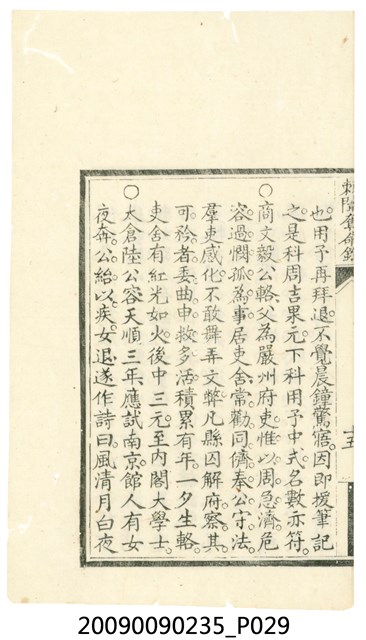 棘闈奪命錄
十五
也用予再拜退不覺晨鐘驚寤因卽援筆記
之是科周吉果元下科用予中式名數亦符
○商文毅公輅父為嚴州府吏惟以周急濟危
容過憫孤為事居吏舍常勸同儕奉公守法
羣吏感化不敢舞弄文弊凡縣因解府察其
可矜者委曲申救多活積累有年一夕生輅
吏舍有紅光如火後中三元至內閣大學士
○太倉陸公容天順三年應試南京館人有女
夜奔公紿以疾女退遂作詩曰風清月白夜
20090090235_P029